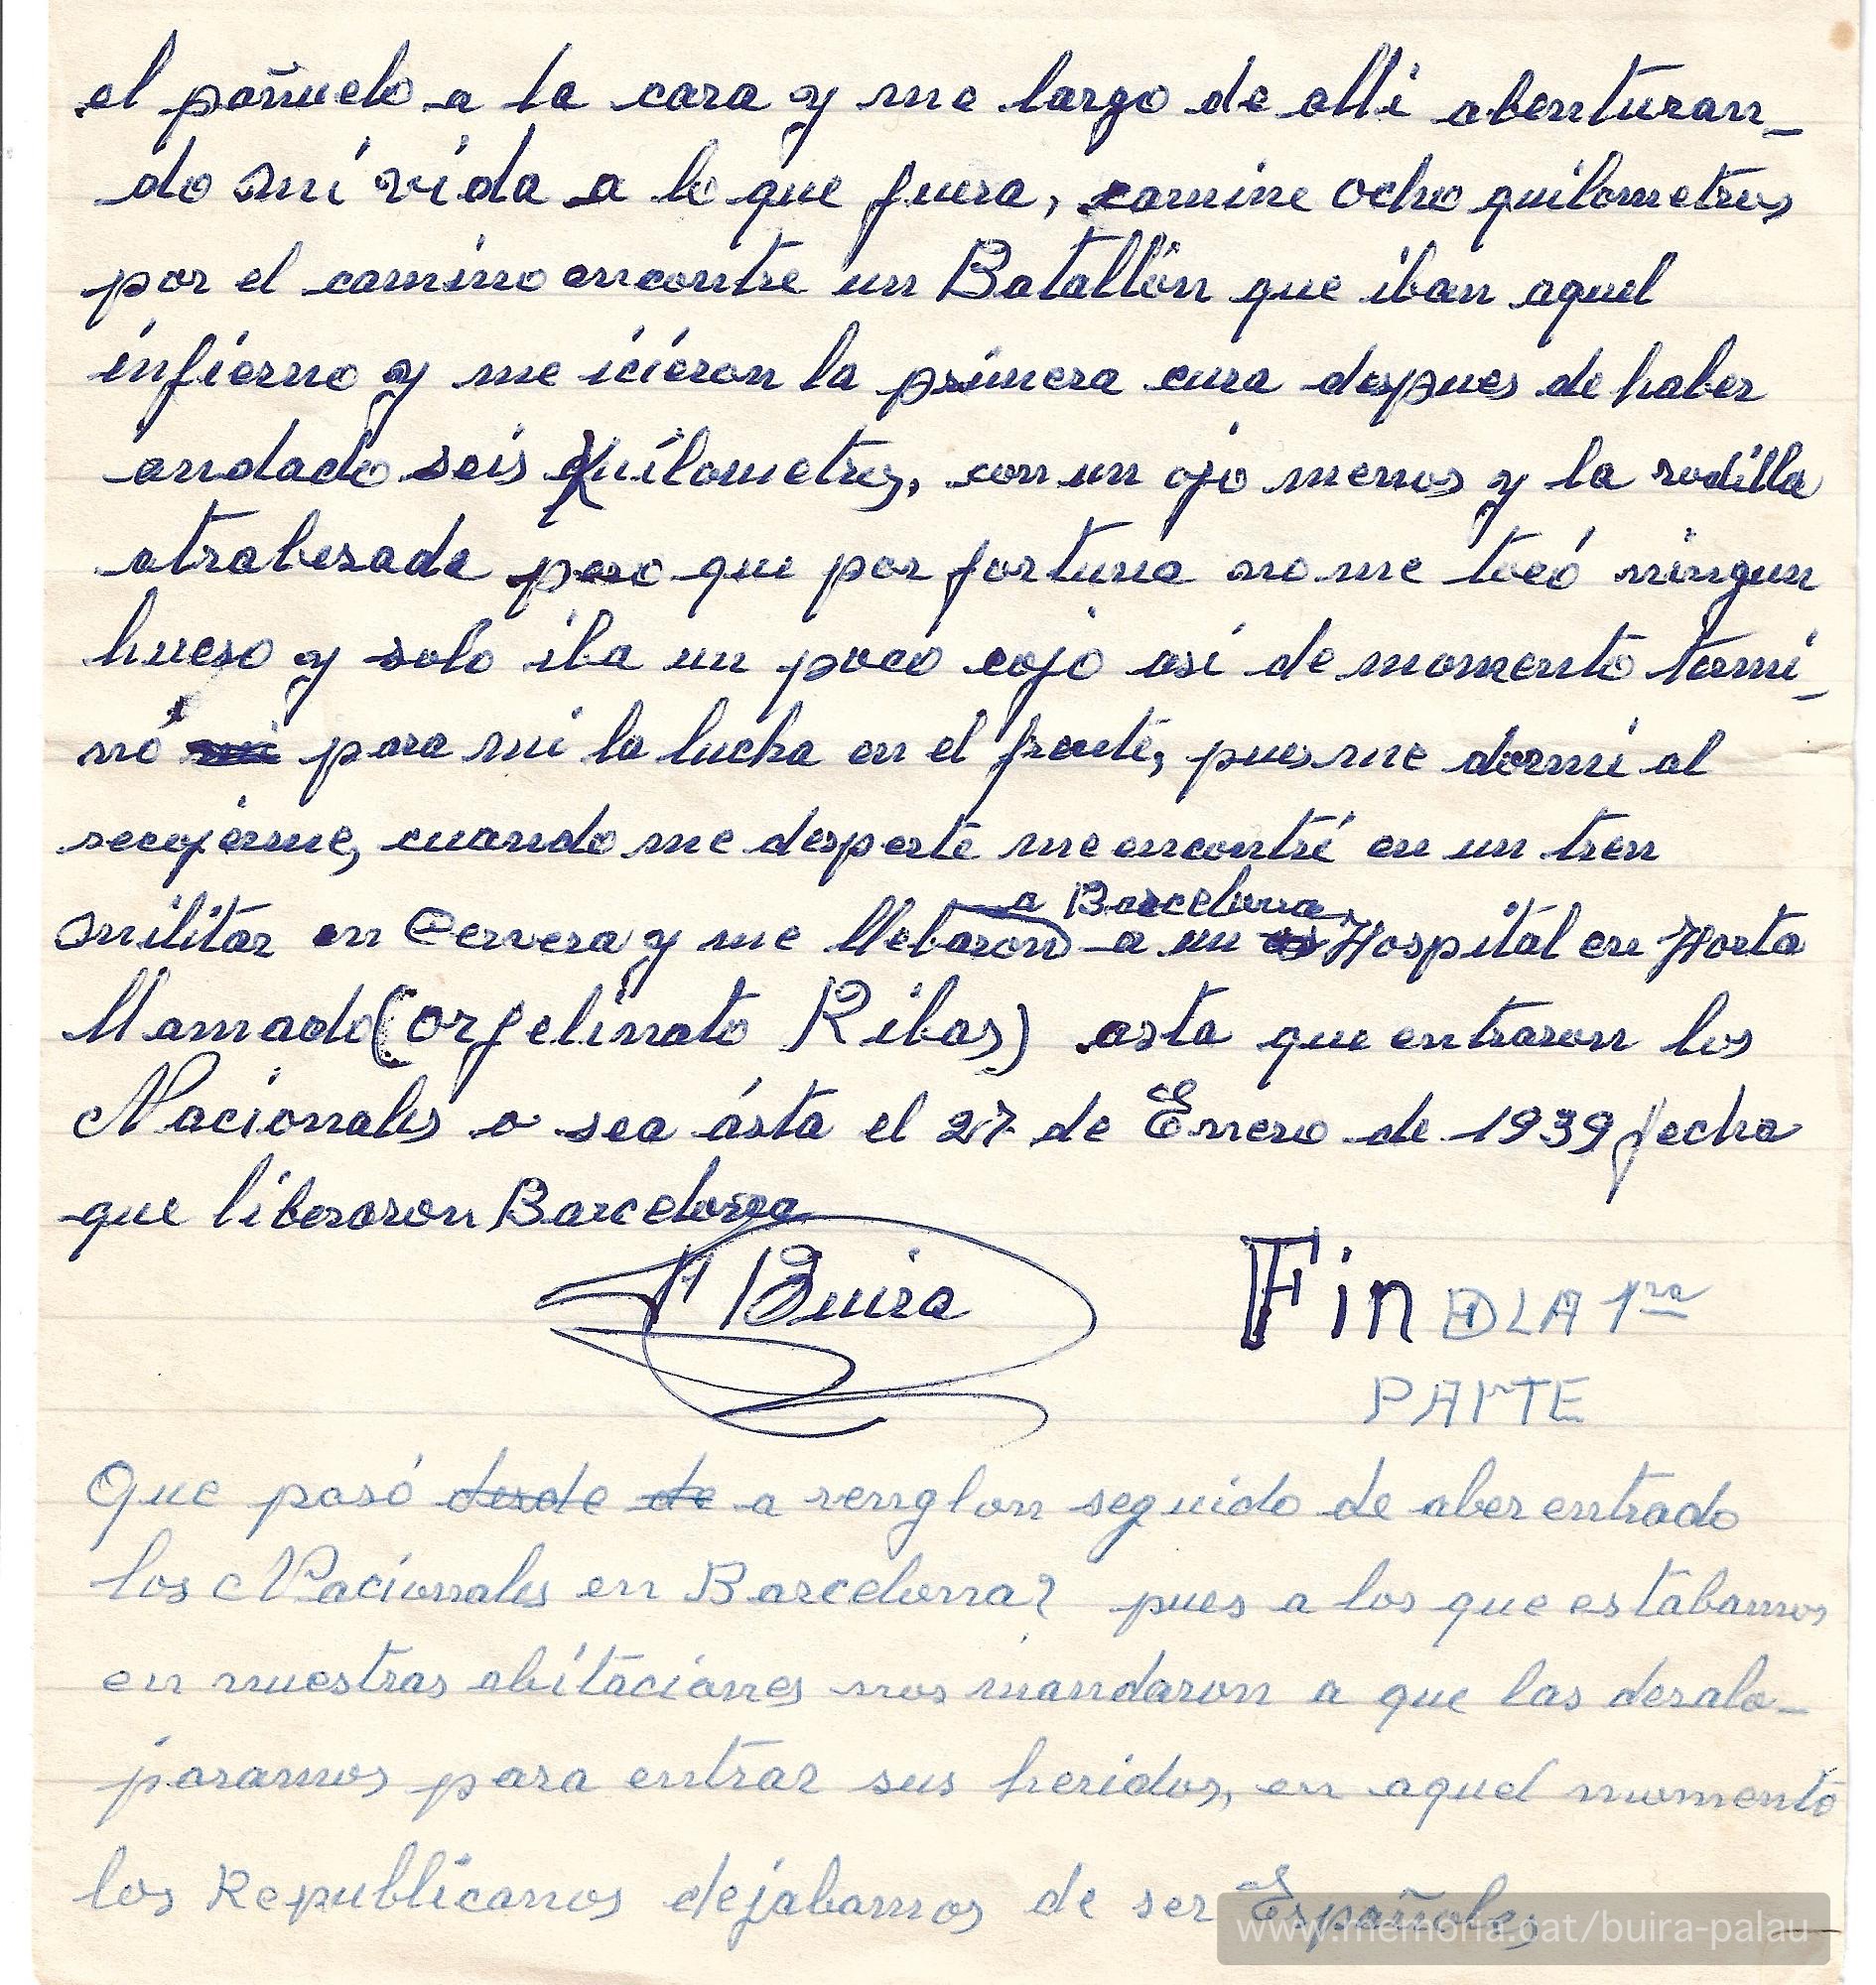 el pañuelo a la cara y me largo de alli abenturan-
do mi vida a lo que fuera, camine ocho quilometros
por el camino encontre un Batallón que iban aquel
infierno y me icieron la primera cura despues de haber
andado seis Kuilometros, con un ojo menos y la rodilla
atrabesada pero que por fortuna no me tocó ningun
hueso y solo iba un poco cojo asi de momento termi-
nó mi para mi la lucha en el frente, pues me dormi al
recojerme, cuando me desperte me encontré en un tren
a Barcelona
militar en Cervera y me llebaron a un Hospital en Horta
llamado (Orfelinato Ribas) asta que entraron los
Nacionales o sea ásta el 27 de Enero de 1939 fecha
que liberaron Barcelona
Buira
Fin D LA 1ra
PARTE
Que pasó desde de a renglon seguido de aber entrado
los Nacionales en Barcelona? pues a los que estabamos
en nuestras abitaciones nos mandaron a que las desalo-
jaramos para entrar sus heridos, en aquel momento
los Republicanos dejabamos de ser Españoles
www.memoria.cat/buira-palau